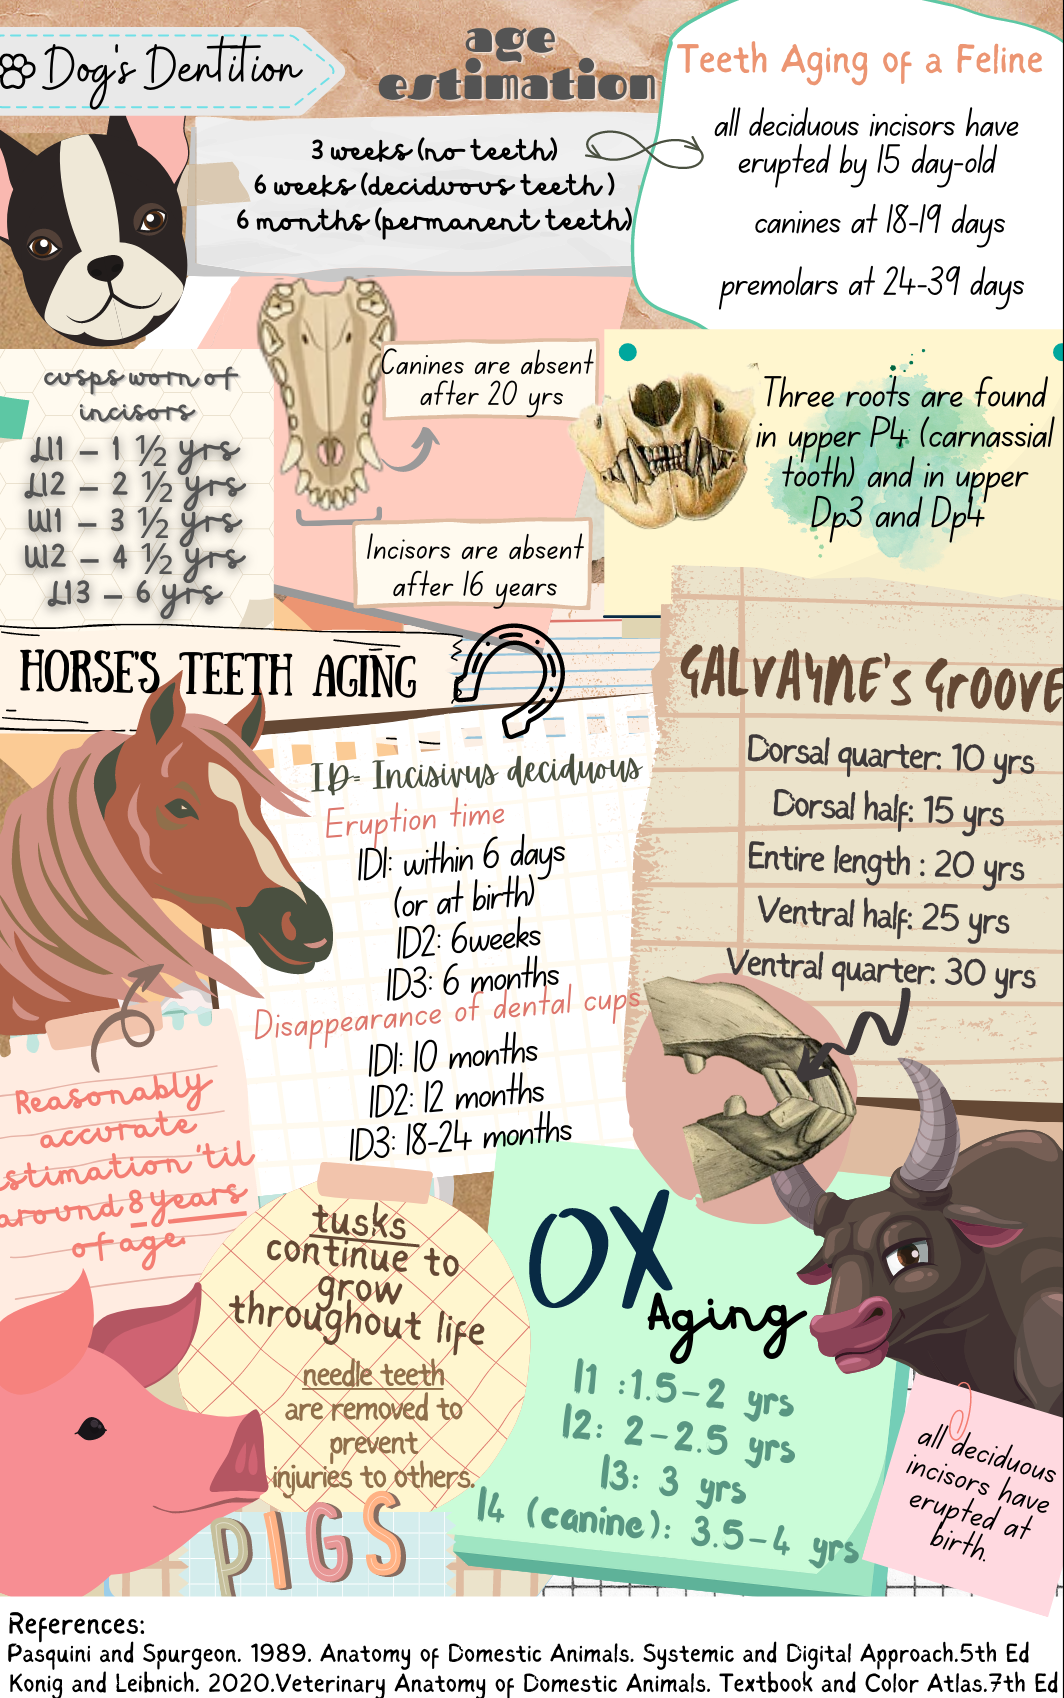 Dog's Dentition
age
estimation
3 weeks (no teeth)
6 weeks (deciduous teeth )
6 months (permanent teeth)
Teeth Aging of a Feline
all deciduous incisors have
erupted by 15 day-old
canines at 18-19 days
premolars at 24-39 days
cusps worn of
incisors
LI1 – 1 ½ yrs
LI2 – 2 ½ yrs
UI1 – 3 ½ yrs
UI2 – 4 ½ yrs
LI3 – 6 yrs
Canines are absent
after 20 yrs
Incisors are absent
after 16 years
Three roots are found
in upper P4 (carnassial
tooth) and in upper
Dp3 and Dp4
HORSE'S TEETH AGING
ID= Incisivus deciduous
Eruption time
ID1: within 6 days
(or at birth)
ID2: 6weeks
ID3: 6 months
Disappearance of dental cups
ID1: 10 months
ID2: 12 months
ID3: 18-24 months
GALVAYNE's GROOVE
Dorsal quarter: 10 yrs
Dorsal half: 15 yrs
Entire length : 20 yrs
Ventral half: 25 yrs
Ventral quarter: 30 yrs
Reasonably
accurate
estimation 'til
around 8 years
of age.
tusks
continue to
grow
throughout life
needle teeth
are removed to
prevent
injuries to others.
PIGS
OX
Aging
I1 :1.5-2 yrs
I2: 2-2.5 yrs
I3: 3 yrs
I4 (canine): 3.5-4 yrs
all deciduous
incisors have
erupted at
birth.
References:
Pasquini and Spurgeon. 1989. Anatomy of Domestic Animals. Systemic and Digital Approach.5th Ed
Konig and Leibnich. 2020.Veterinary Anatomy of Domestic Animals. Textbook and Color Atlas.7th Ed